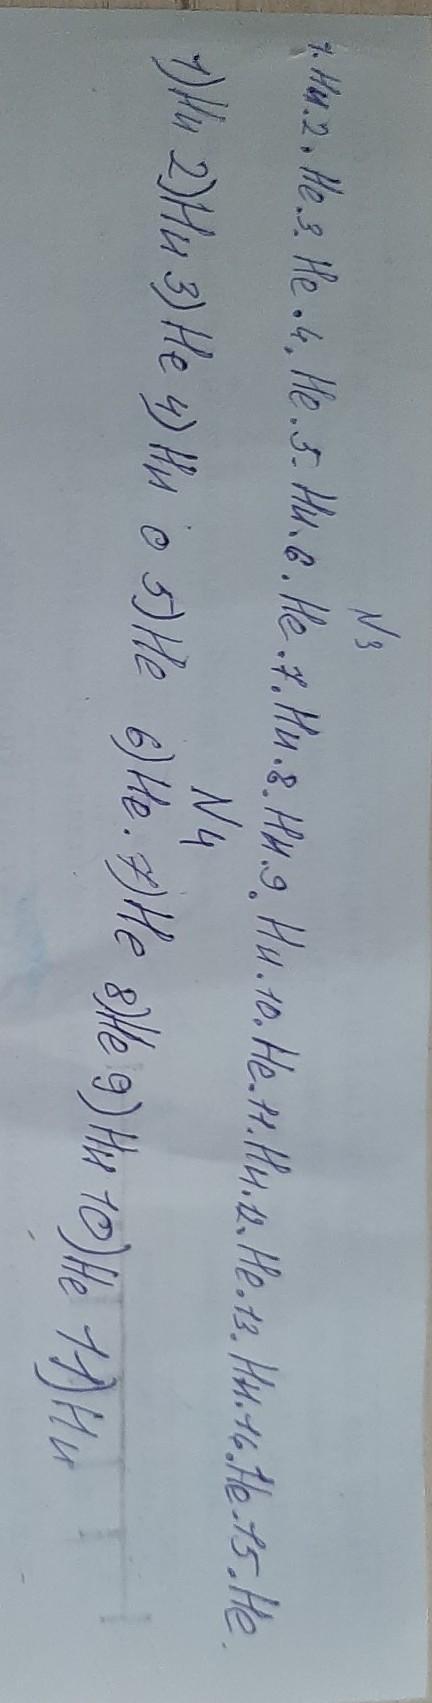 N3
1. Ни. 2. Не. 3. Не. 4. Не. 5. Ни. 6. Не. 7. Ни. 8. Ни. 9. Ни. 10. Не. 11. Ни. 12. Не. 13. Ни. 14. Не. 15. Не.
N4
1) Ни 2) Ни 3) Не 4) Ни 5) Не 6) Не. 7) Не 8) Не 9) Ни 10) Не 11) Ни